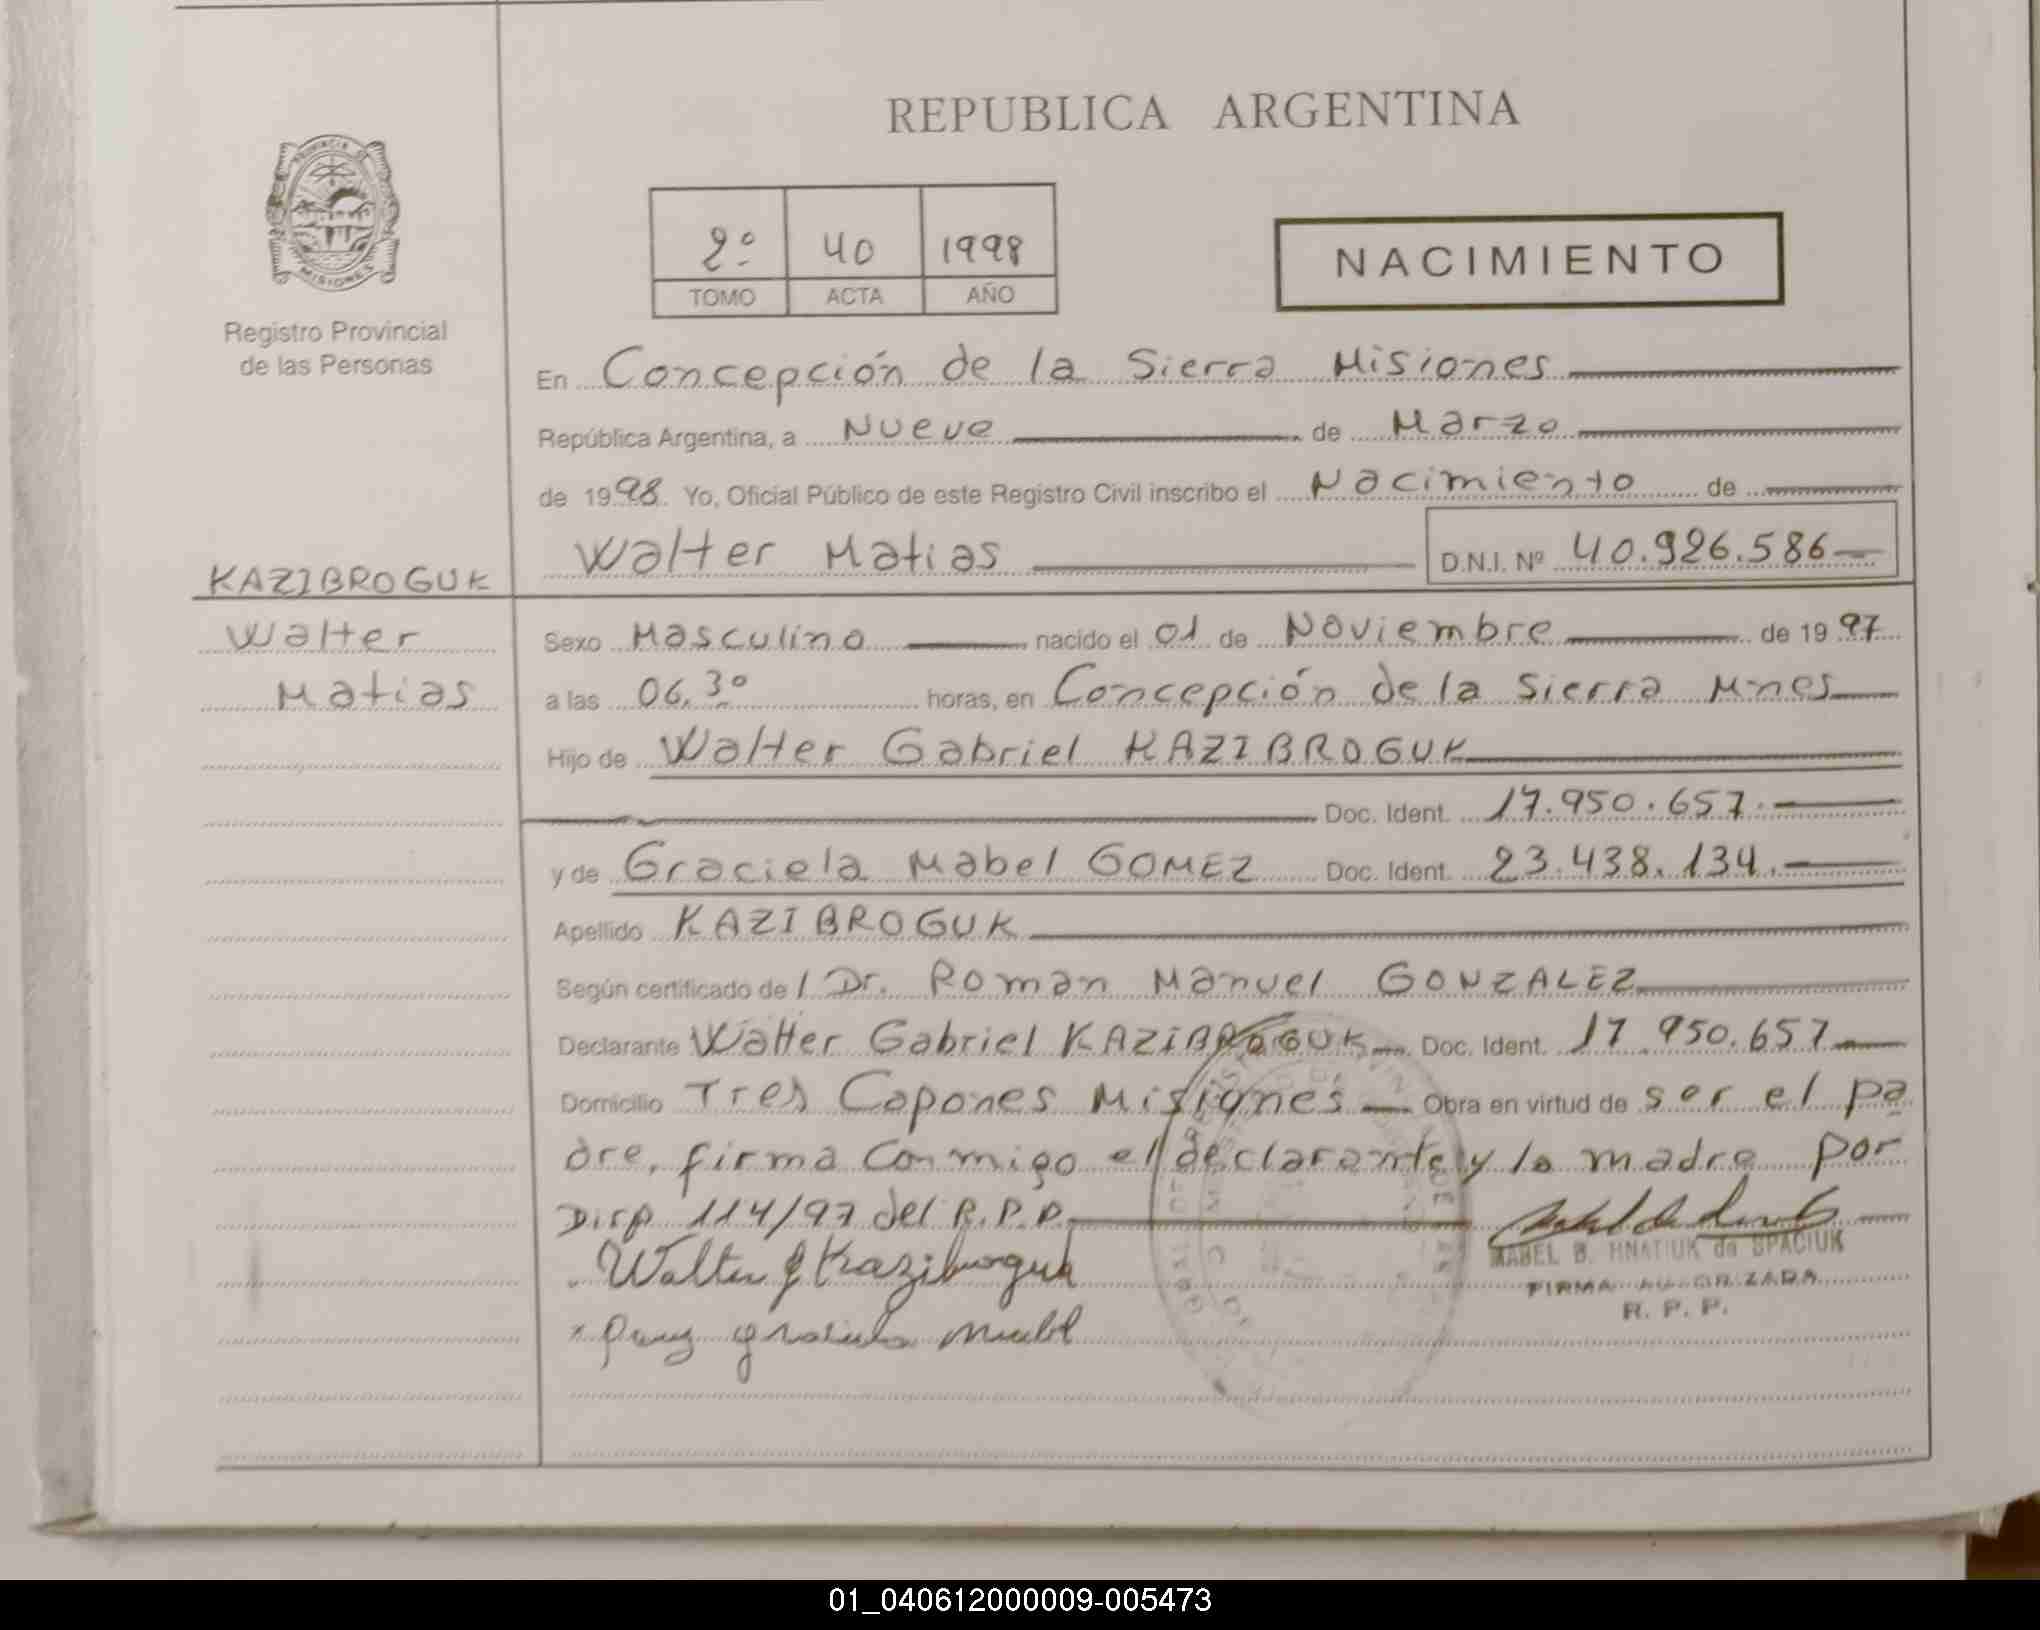 REPUBLICA ARGENTINA
PROVINCIA DE MISIONES
Registro Provincial
de las Personas
2º 40 1998
TOMO ACTA AÑO
NACIMIENTO
En Concepción de la Sierra Misiones
República Argentina, a Nueve de Marzo
de 1998. Yo, Oficial Público de este Registro Civil inscribo el Nacimiento de
Walter Matias D.N.I. Nº 40.926.586
KAZIBROGUK
Walter
Matias
Sexo Masculino nacido el 01 de Noviembre de 1997
a las 06.30 horas, en Concepción de la Sierra Mnes
Hijo de Walter Gabriel KAZIBROGUK
Doc. Ident. 17.950.657.
y de Graciela Mabel GOMEZ Doc. Ident. 23.438.134.
Apellido KAZIBROGUK
Según certificado de l Dr. Roman Manuel GONZALEZ
Declarante Walter Gabriel KAZIBROGUK Doc. Ident. 17.950.657
Domicilio Tres Capones Misiones Obra en virtud de ser el pa
dre, firma conmigo el declarante y la madre por
Disp 114/97 del R.P.P.
Walter G Kaziburguk
MABEL B. HNATIUK de SPACIUK
FIRMA AUTORIZADA
R. P. P.
01_040612000009-005473